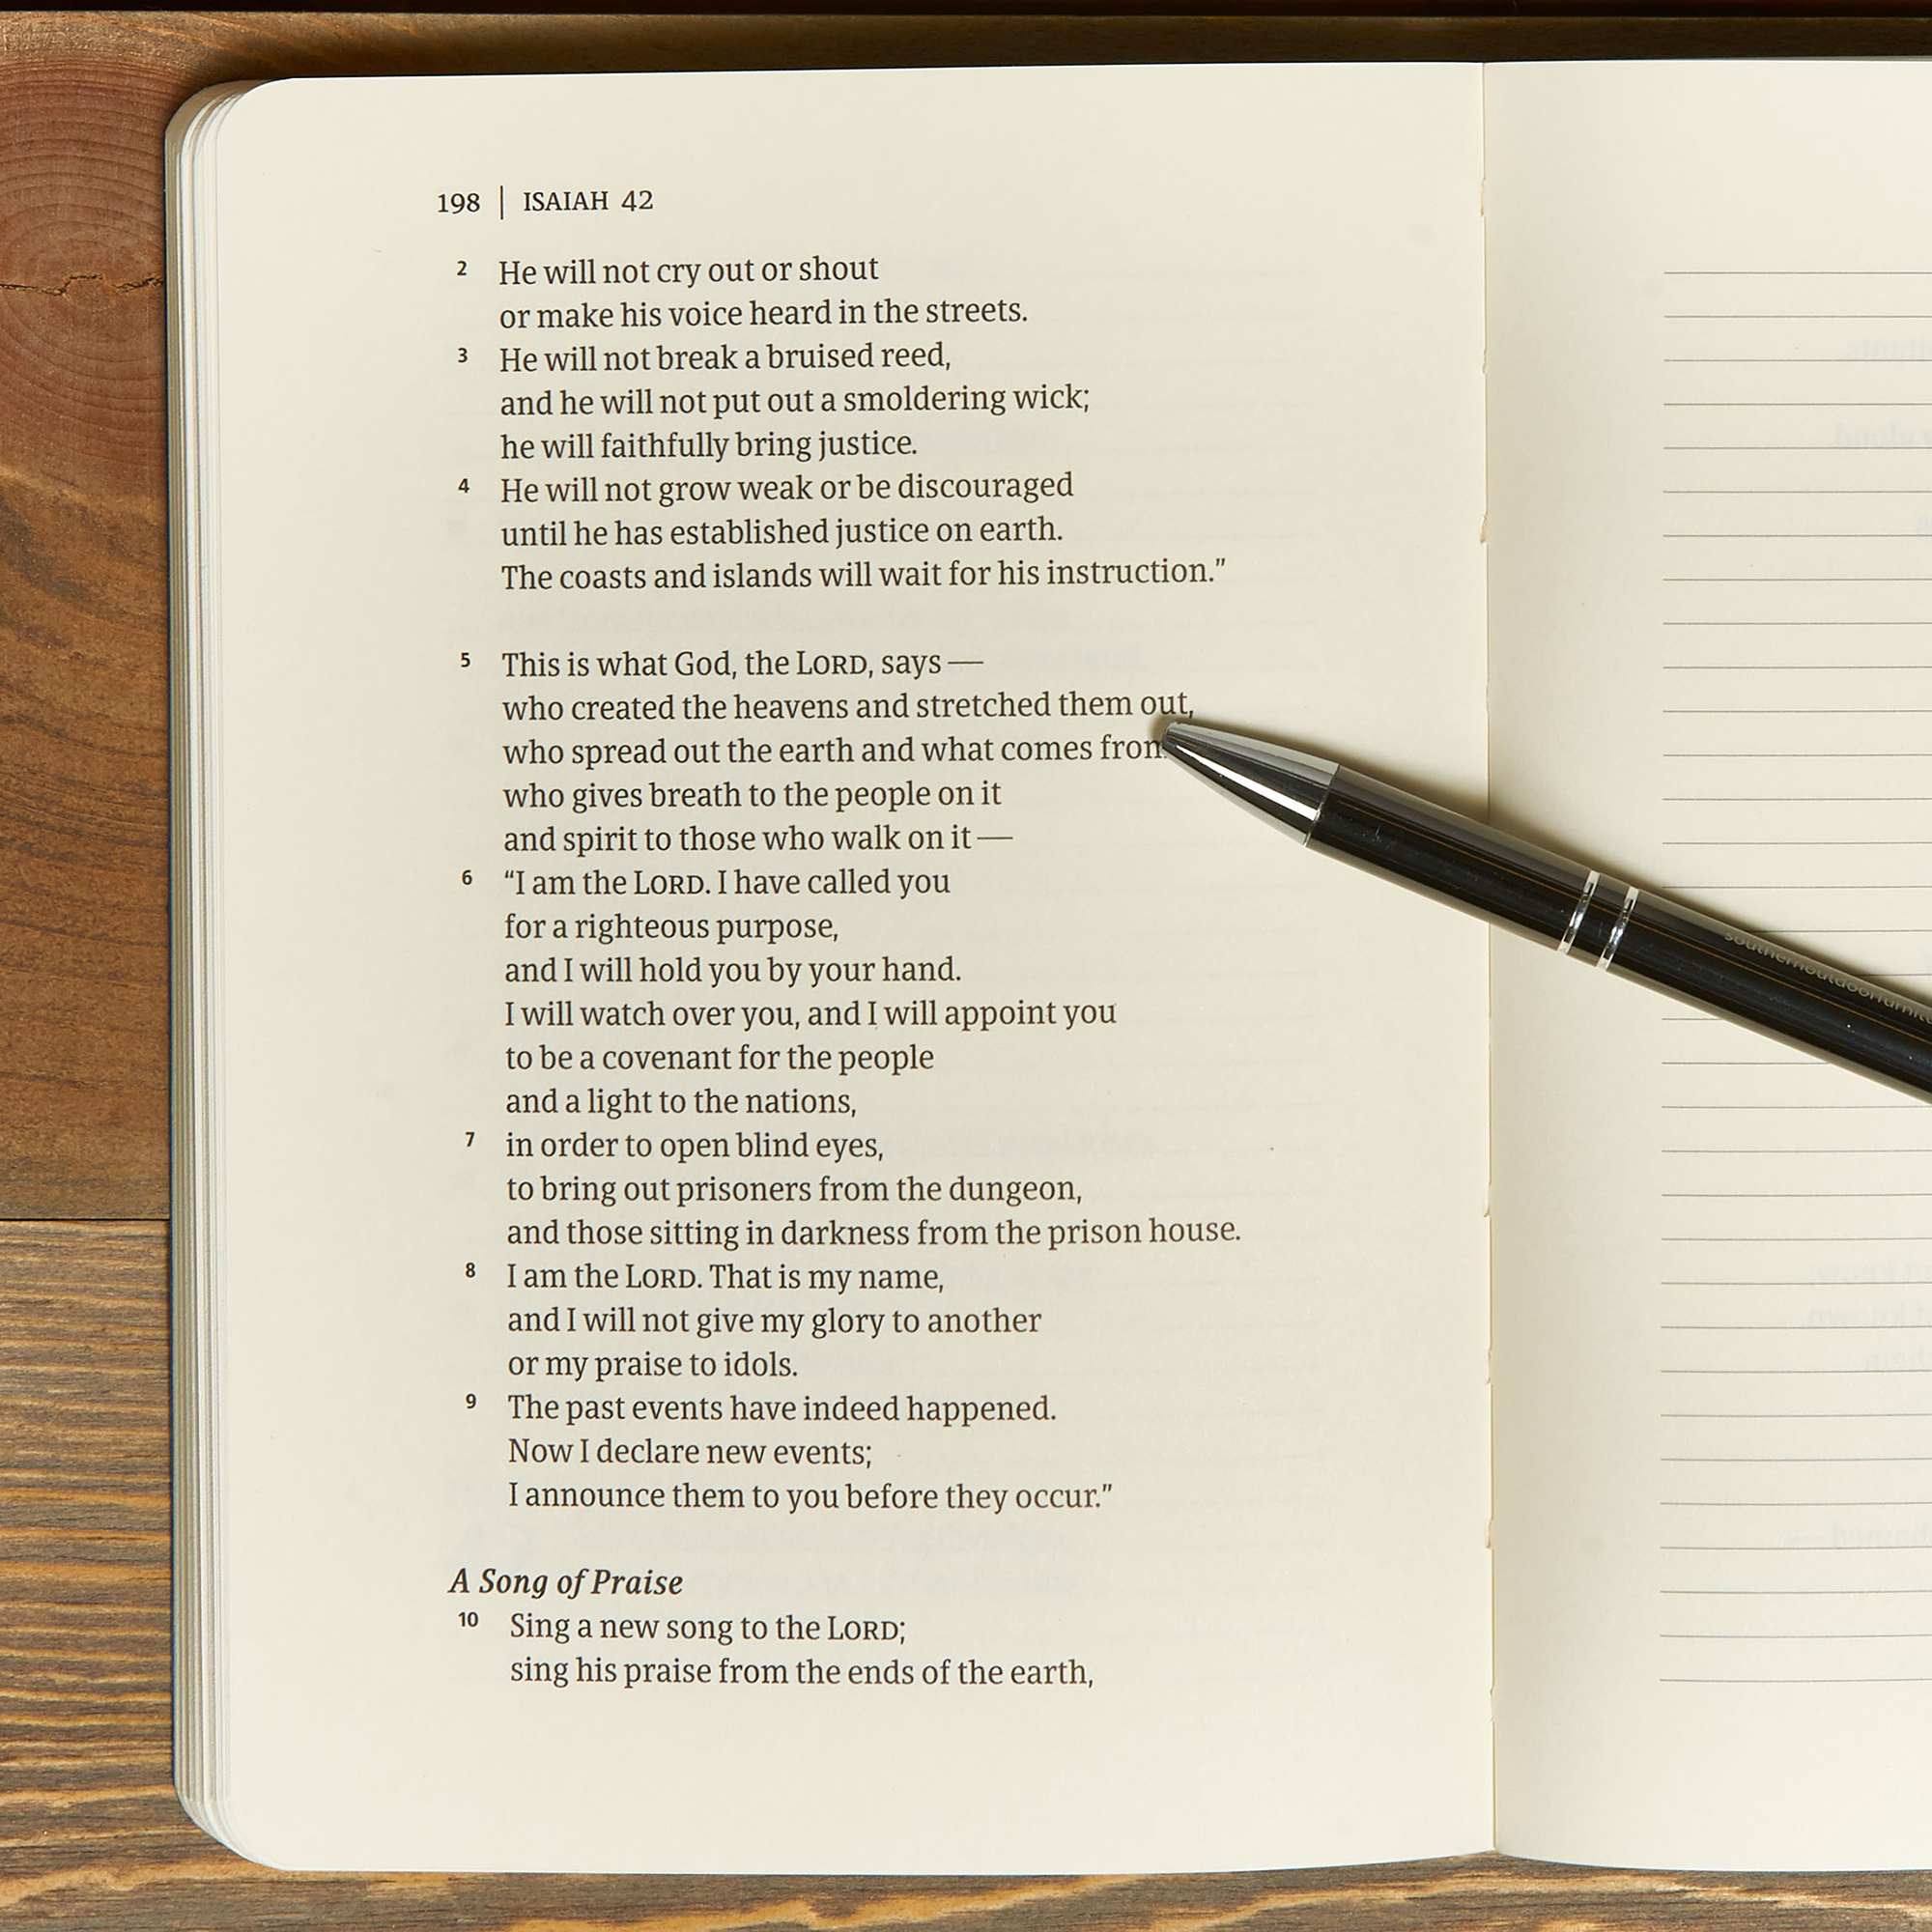 198 | ISAIAH 42
2 He will not cry out or shout
or make his voice heard in the streets.
3 He will not break a bruised reed,
and he will not put out a smoldering wick;
he will faithfully bring justice.
4 He will not grow weak or be discouraged
until he has established justice on earth.
The coasts and islands will wait for his instruction.”
5 This is what God, the LORD, says —
who created the heavens and stretched them out,
who spread out the earth and what comes from
who gives breath to the people on it
and spirit to those who walk on it —
6 “I am the LORD. I have called you
for a righteous purpose,
and I will hold you by your hand.
I will watch over you, and I will appoint you
to be a covenant for the people
and a light to the nations,
7 in order to open blind eyes,
to bring out prisoners from the dungeon,
and those sitting in darkness from the prison house.
8 I am the LORD. That is my name,
and I will not give my glory to another
or my praise to idols.
9 The past events have indeed happened.
Now I declare new events;
I announce them to you before they occur.”
A Song of Praise
10 Sing a new song to the LORD;
sing his praise from the ends of the earth,